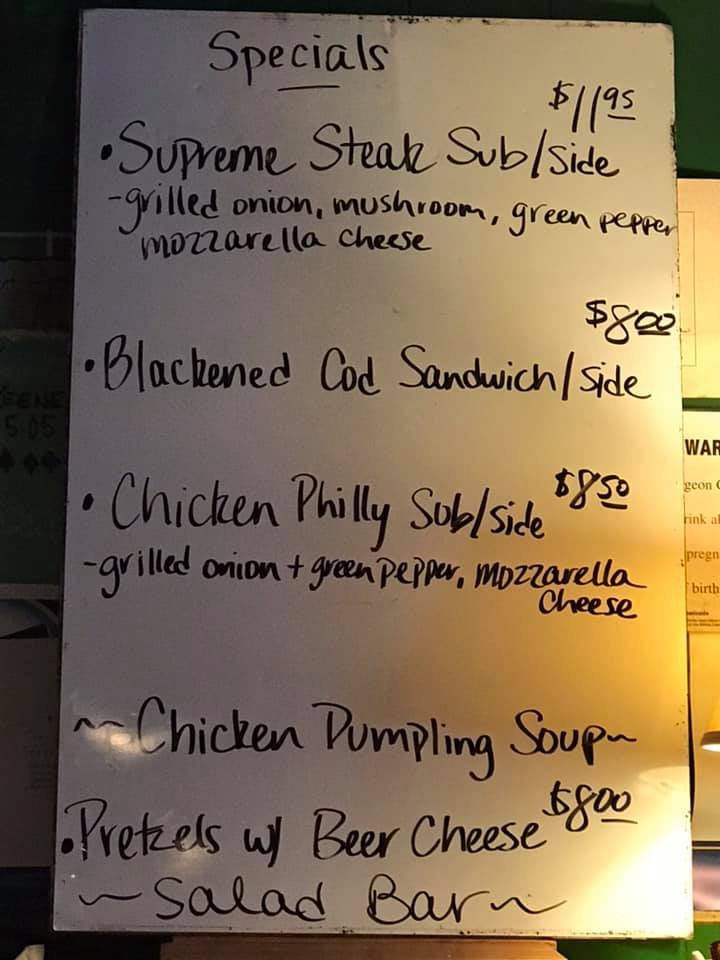 Specials
$11.95
•Supreme Steak Sub/side
-grilled onion, mushroom, green pepper
mozzarella cheese
$8.00
•Blackened Cod Sandwich/side
•Chicken Philly Sub/side $8.50
-grilled onion + green pepper, mozzarella
cheese
~Chicken Dumpling Soup~
•Pretzels w/ Beer Cheese $8.00
~Salad Bar~
WAR
geon
rink al
pregn
birth